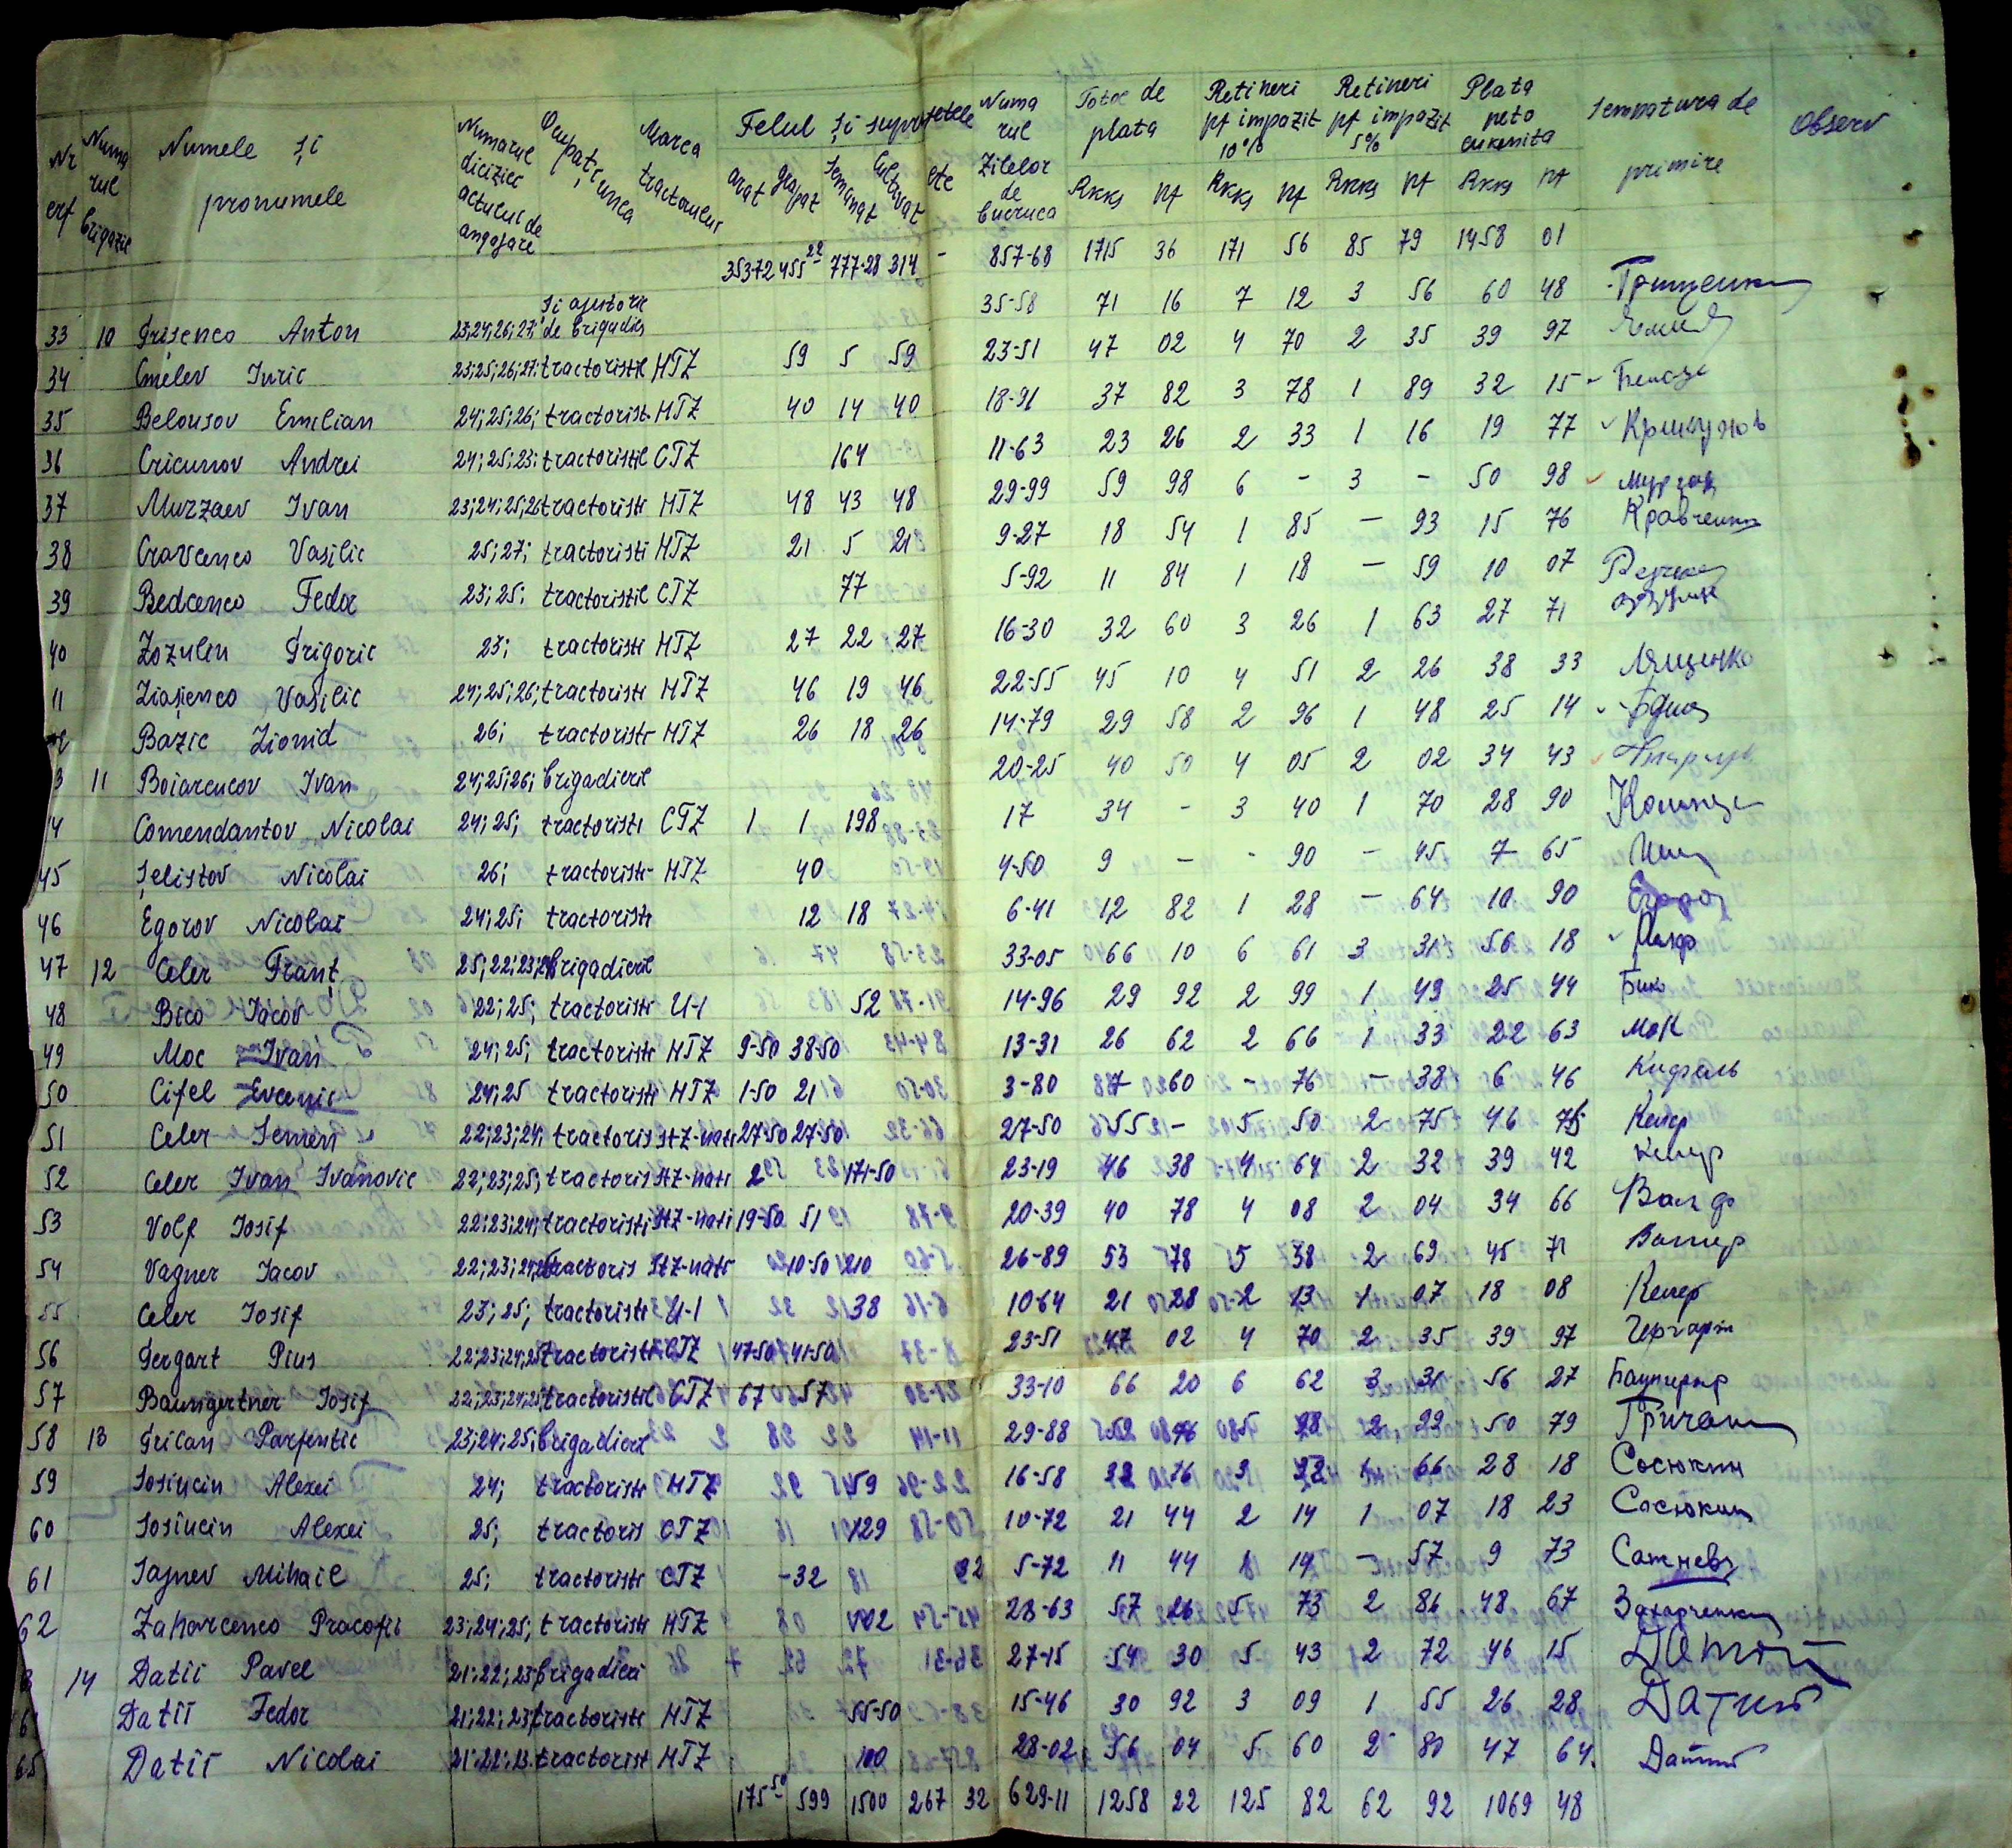 Nr crt Numa rul brigazie Numele și pronumele Numarul diciziei actului de angajare Ocupațiunea Marca tractorului Felul și suprafetele arat grapat Semanat Cultivat etc Numa rul Zilelor de Lucruca Total de plata Rkkș pf Retineri pt impozit 10% Rkkș pf Retineri pt impozit 5% Rkkș pf Plata neto cuvenita Rkkș pf Semnatura de primire Observ
353-72 455 22 777-28 314 - 857-68 1715 36 171 56 85 79 1458 01
33 10 Grișenco Anton 23;24;26;27; și ajutorii de brigadier 35-58 71 16 7 12 3 56 60 48 Грищенко
34 Cmelev Iurie 23;25;26;27; tractoristi HTZ 59 5 59 23-51 47 02 4 70 2 35 39 97
35 Belousov Emilian 24;25;26; tractorist HTZ 40 14 40 18-91 37 82 3 78 1 89 32 15
36 Cricunov Andrei 24;25;23; tractoristi CTZ 164 11-63 23 26 2 33 1 16 19 77 Крикунов
37 Murzaev Ivan 23;24;25;26 tractoristi HTZ 48 43 48 29-99 59 98 6 - 3 - 50 98
38 Cravcenco Vasilie 25;27; tractoristi HTZ 21 5 21 9-27 18 54 1 85 - 93 15 76 Кравченко
39 Bedcenco Fedor 23;25; tractoristi CTZ 77 5-92 11 84 1 18 - 59 10 07
40 Zozulin Grigorie 23; tractoristi HTZ 27 22 27 16-30 32 60 3 26 1 63 27 71
11 Liașenco Vasilie 24;25;26; tractoristi HTZ 46 19 46 22-55 45 10 4 51 2 26 38 33 Лященко
2 Bazic Lionid 26; tractoristi HTZ 26 18 26 14-79 29 58 2 96 1 48 25 14
3 11 Boiarcucov Ivan 24;25;26; brigadieril 20-25 40 50 4 05 2 02 34 43
4 Comendantov Nicolai 24;25; tractoristi CTZ 1 1 198 17 34 - 3 40 1 70 28 90
45 Șelistov Nicolai 26; tractoristi HTZ 40 4-50 9 - - 90 - 45 7 65
46 Egorov Nicolai 24;25; tractoristi 12 18 6-41 12 82 1 28 - 64 10 90 Егоров
47 12 Celer Franț 25;22;23;24 brigadieril 33-05 66 10 6 61 3 31 56 18
48 Bico Iacov 22;25; tractoristi U-1 52 14-96 29 92 2 99 1 49 25 44 Бико
49 Moc Ivan 24;25; tractoristi HTZ 9-50 38-50 13-31 26 62 2 66 1 33 22 63 Мок
50 Cifel Evcenie 24;25 tractoristi HTZ 1-50 21 3-80 7 60 - 76 - 38 6 46 Кифель
51 Celer Semen 22;23;24; tractoris StZ-nati 27-50 27-50 27-50 55 - 5 50 2 75 46 75 Келер
52 Celer Ivan Ivanovic 22;23;25; tractoris StZ-nati 2 171-50 23-19 46 38 4 64 2 32 39 42 Келер
53 Volf Iosif 22;23;24; tractoristi StZ-nati 19-50 51 20-39 40 78 4 08 2 04 34 66 Вольф
54 Vagner Iacov 22;23;24;25 tractoris StZ-nati 10-50 210 26-89 53 78 5 38 2 69 45 71 Вагнер
55 Celer Iosif 23;25; tractoristi U-1 38 10-64 21 28 2 13 1 07 18 08 Келер
56 Gergart Pius 22;23;24;25 tractoristi CTZ 47-50 41-50 23-51 47 02 4 70 2 35 39 97 Гергарт
57 Baumgertner Iosif 22;23;24;25 tractoristi CTZ 67 57 33-10 66 20 6 62 3 31 56 27
58 13 Grican Parfentie 23;24;25; brigadieril 29-88 50 79 Гричан
59 Sosiucin Alexei 24; tractoristi HTZ 59 16-58 76 66 28 18 Сосюкин
60 Sosiucin Alexei 25; tractoris CTZ 129 10-72 21 44 2 14 1 07 18 23 Сосюкин
61 Sajnev Mihail 25; tractoristi CTZ -32 32 5-72 11 44 1 14 - 57 9 73 Сажнев
62 Zaharcenco Procofii 23;24;25; tractoristi HTZ 102 28-63 57 26 5 73 2 86 48 67 Захарченко
3 14 Datii Pavel 21;22;23 brigadieri 27-15 54 30 5 43 2 72 46 15 Датий
6 Datii Fedor 21;22;23 tractoristi HTZ 55-50 15-46 30 92 3 09 1 55 26 28 Датий
65 Datii Nicolai 21;22;23 tractorist HTZ 100 28-02 56 04 5 60 2 80 47 64 Датий
175 50 599 1500 267 32 629-11 1258 22 125 82 62 92 1069 48